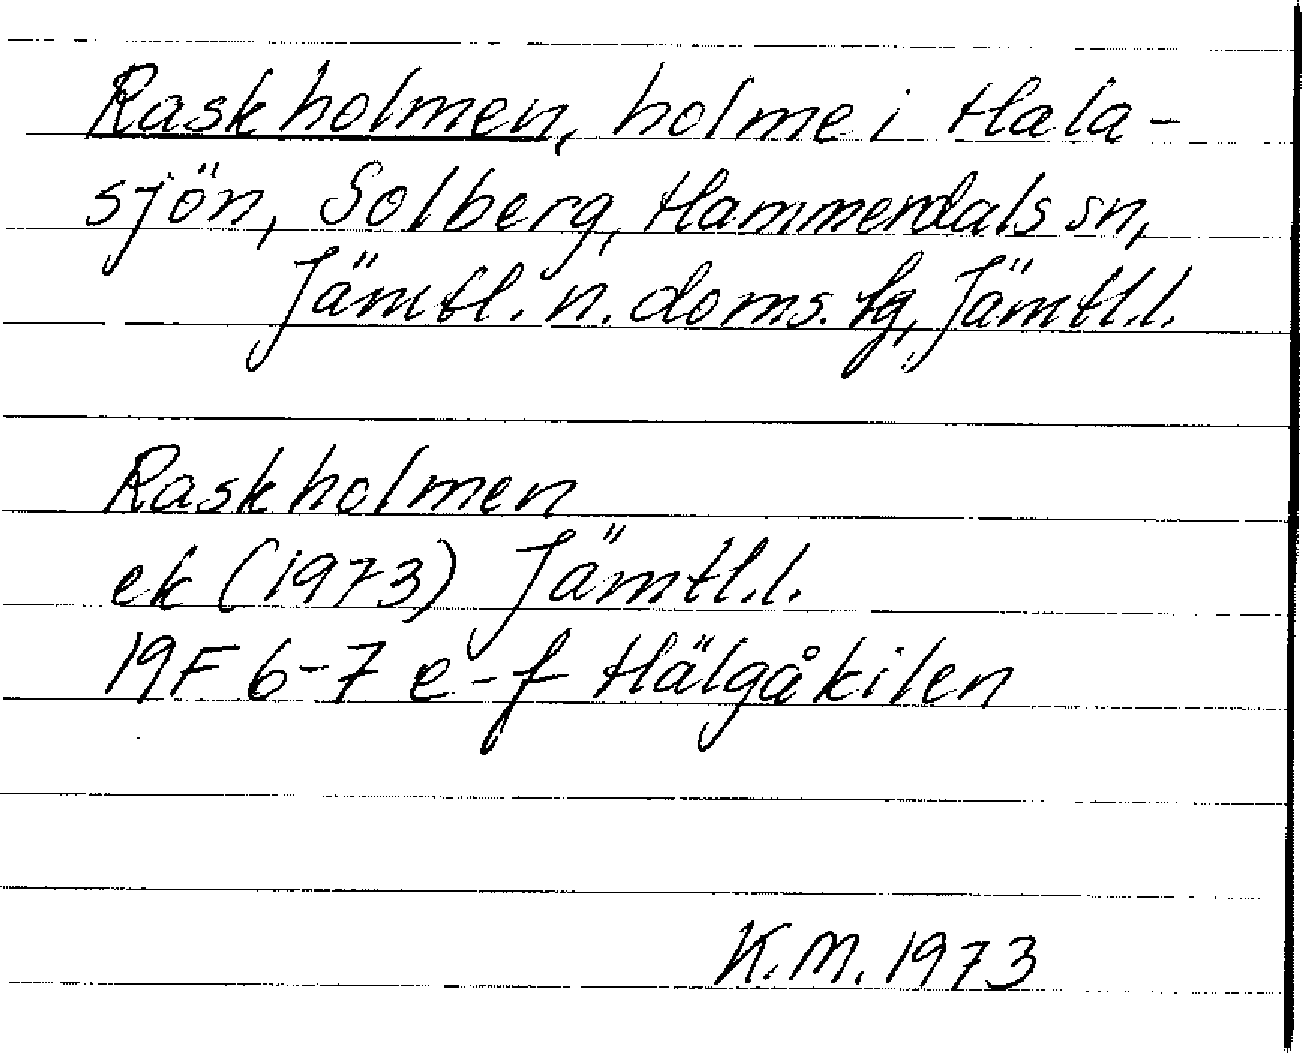 Raskholmen, holme i Hala-
sjön, Solberg, Hammerdals sn,
Jämtl. n. doms. tg, Jämtl.l.
Raskholmen
ek (1973) Jämtl.l.
19F 6-7 e-f Hälgåkilen
K.M. 1973